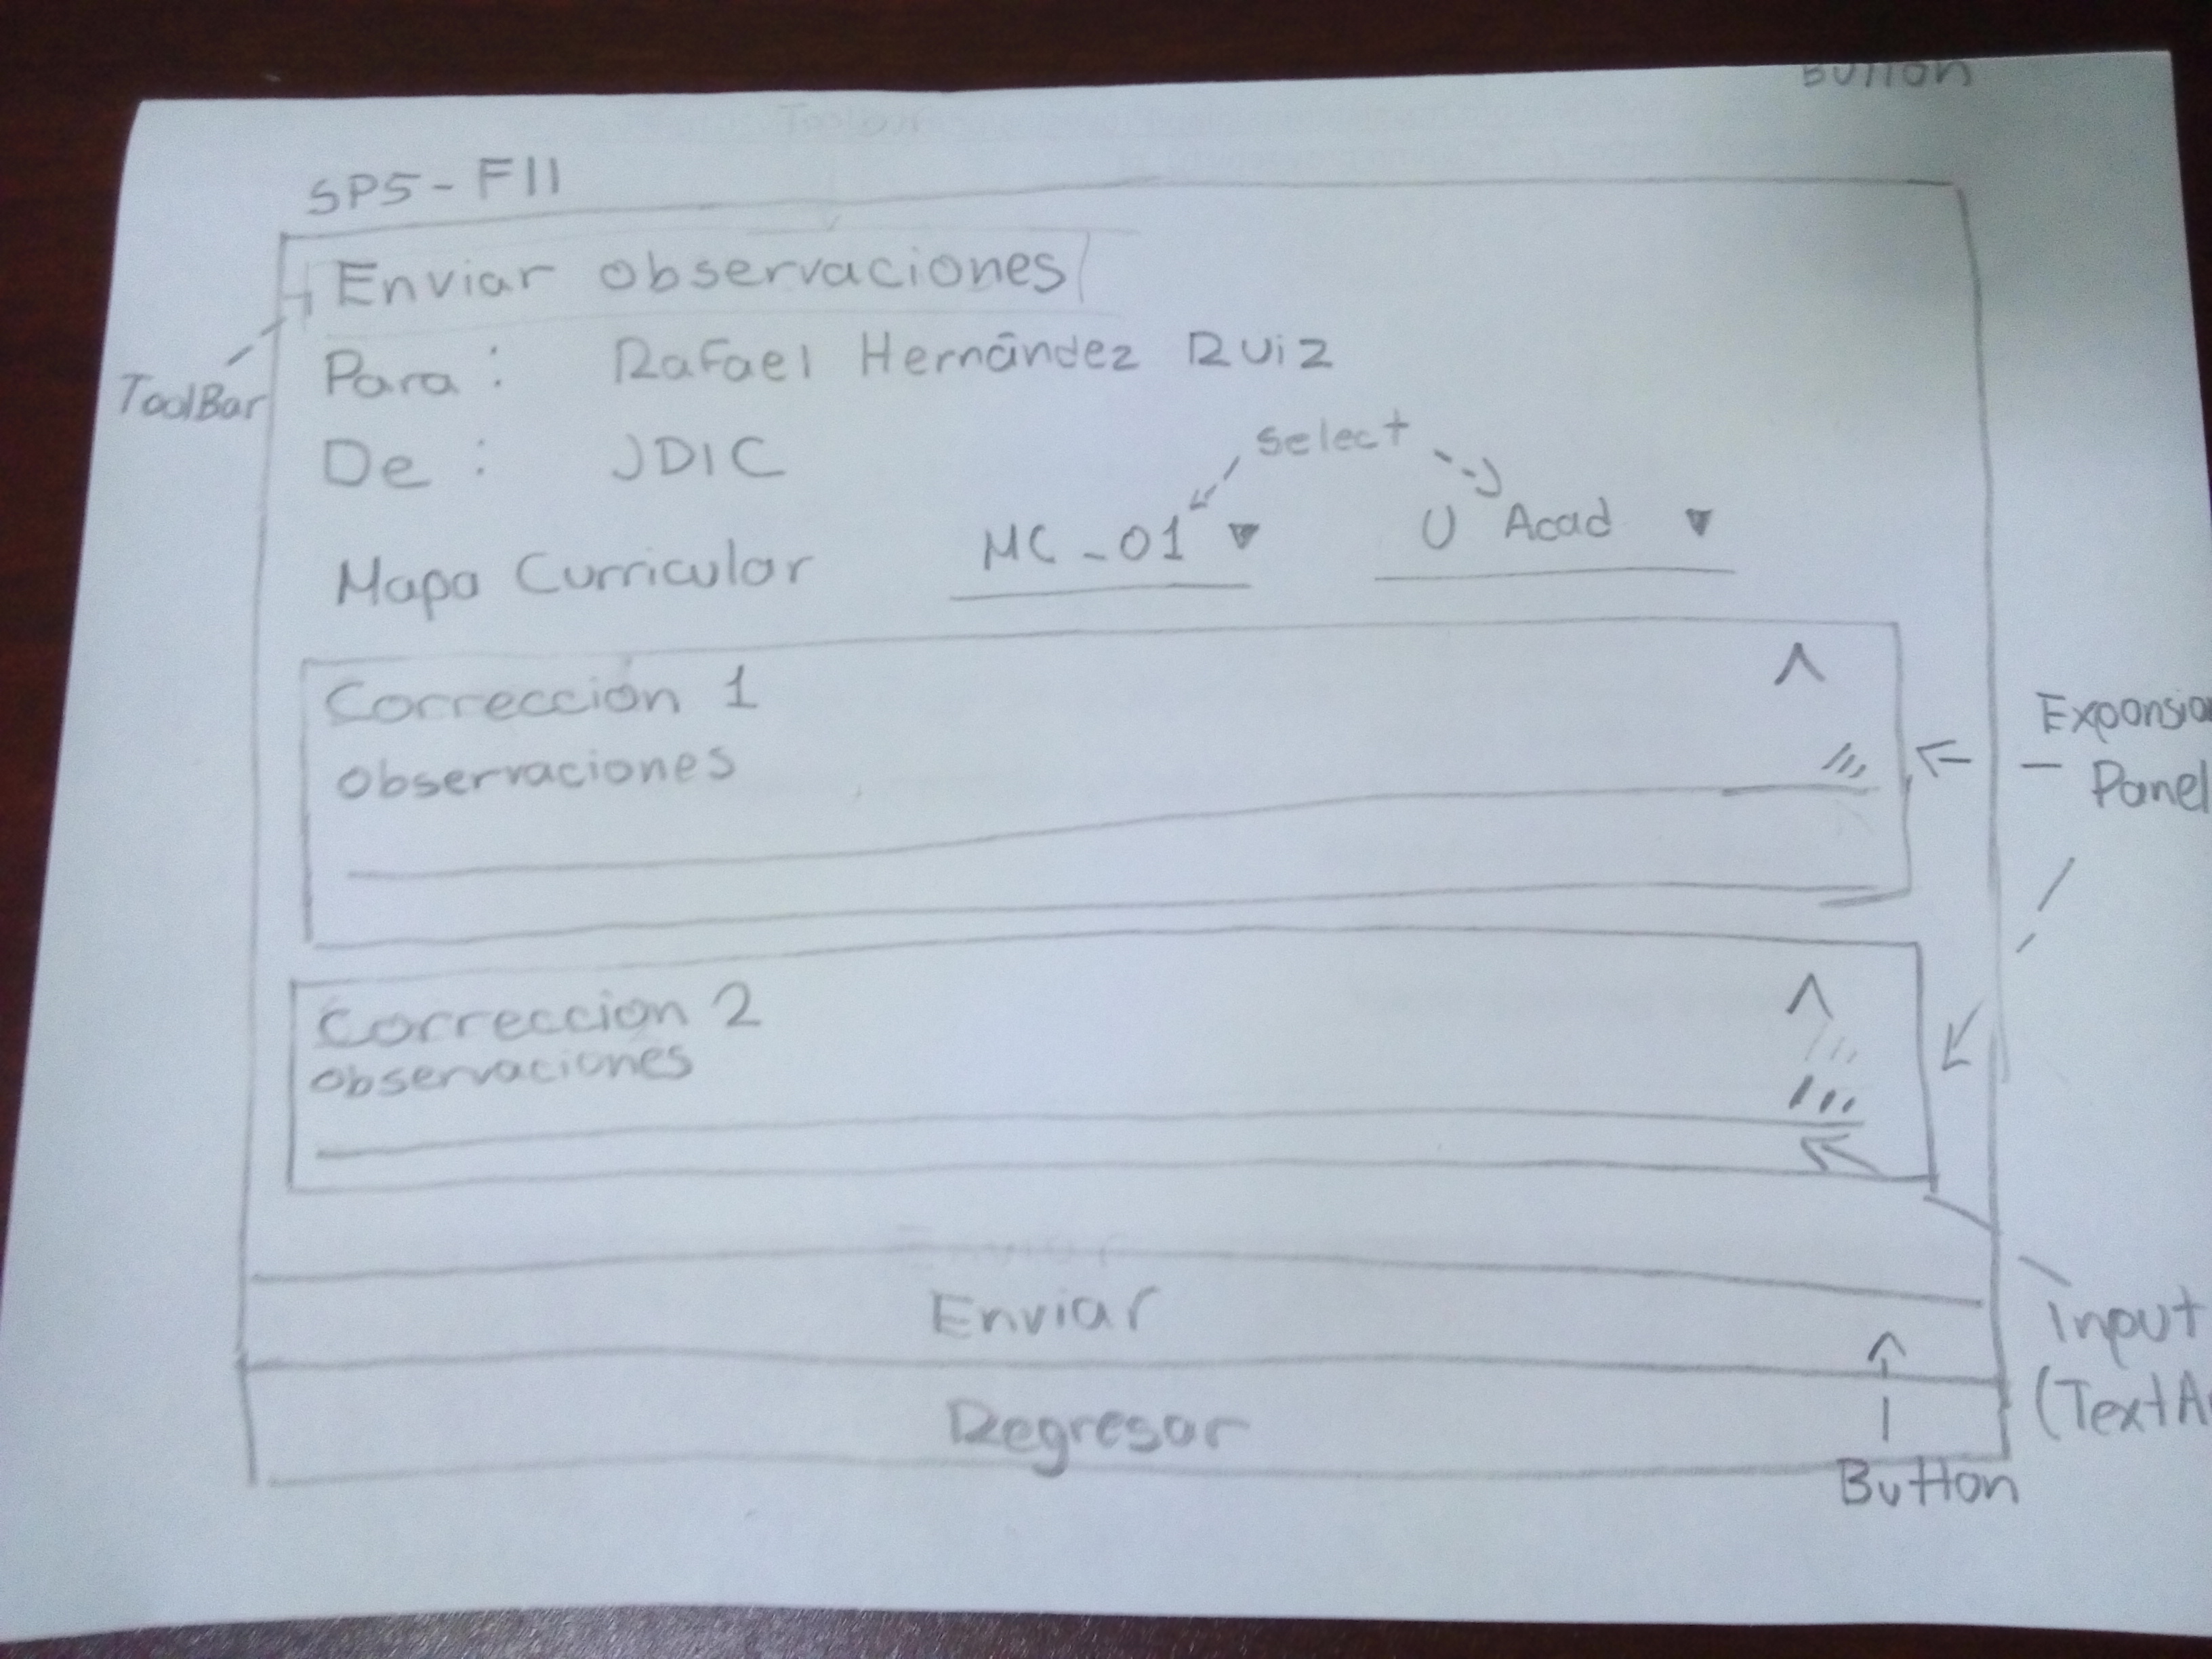 Button
SP5-F11
Enviar observaciones
ToolBar
Para : Rafael Hernández Ruiz
De : JDIC
select
Mapa Curricular MC_01 U Acad
Corrección 1
Observaciones
Expansion
Panel
Correccion 2
Observaciones
Enviar
Input
(TextA
Regresar
Button